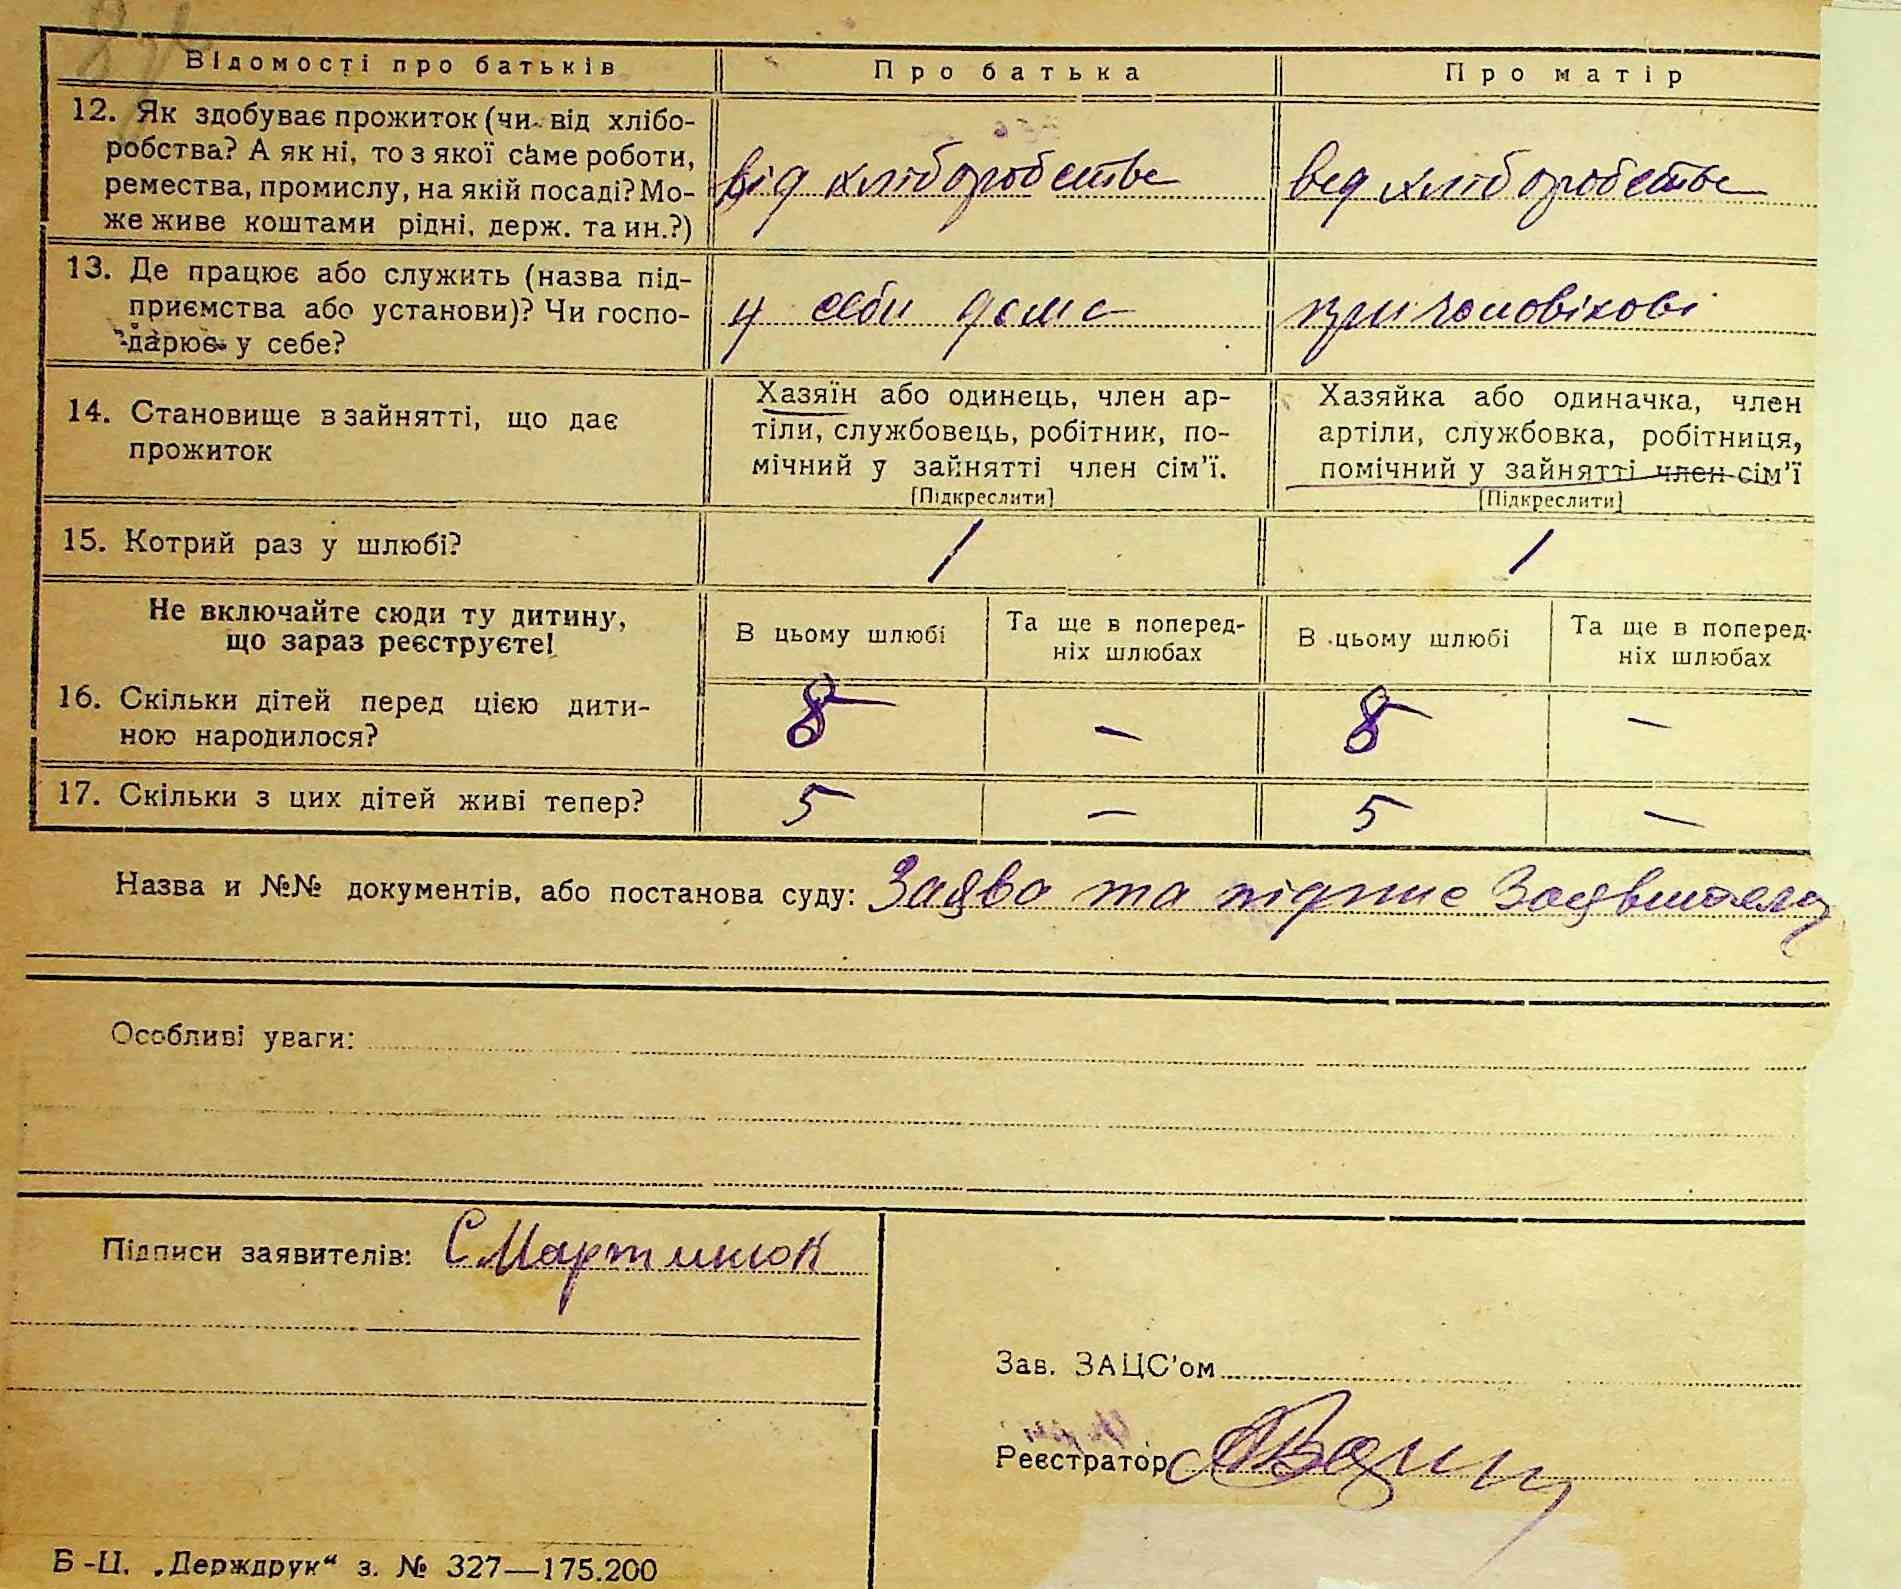 Відомості про батьків
Про батька
Про матір
12. Як здобуває прожиток (чи від хлібо-
робства? А як ні, то з якої саме роботи,
ремества, промислу, на якій посаді? Мо-
же живе коштами рідні, держ. та ин.?)
від хліборобства
вед хліборобства
13. Де працює або служить (назва під-
приємства або установи)? Чи госпо-
дарює у себе?
у себи дома
при чоловікові
14. Становище в зайнятті, що дає
прожиток
Хазяїн або одинець, член ар-
тіли, службовець, робітник, по-
мічний у зайнятті член сім’ї.
[Підкреслити]
Хазяйка або одиначка, член
артіли, службовка, робітниця,
помічний у зайнятті член сім’ї
[Підкреслити]
15. Котрий раз у шлюбі?
1
1
Не включайте сюди ту дитину,
що зараз реєструєте!
В цьому шлюбі
Та ще в поперед-
ніх шлюбах
В цьому шлюбі
Та ще в поперед-
ніх шлюбах
16. Скільки дітей перед цією дити-
ною народилося?
8 — 8 —
17. Скільки з цих дітей живі тепер?
5 — 5 —
Назва и №№ документів, або постанова суду: Заява та підпис Заявителя
Особливі уваги:
Підписи заявителів: С Мартинюк
Зав. ЗАЦС’ом
Реєстратор
Б-Ц. „Держдрук“ з. № 327—175.200